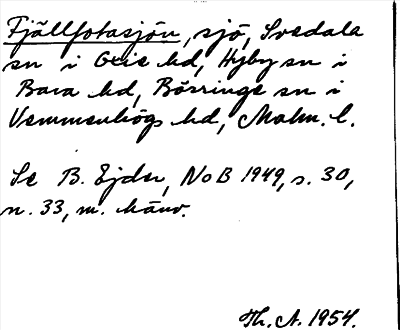 Fjällfotasjön, sjö, Svedala
sn i Oxie hd, Hyby sn i
Bara hd, Börringe sn i
Vemmenhögs hd, Malm. l.
Se B. Ejder, NoB 1949, s. 30,
n. 33, m. hänv.
Th. A. 1954.